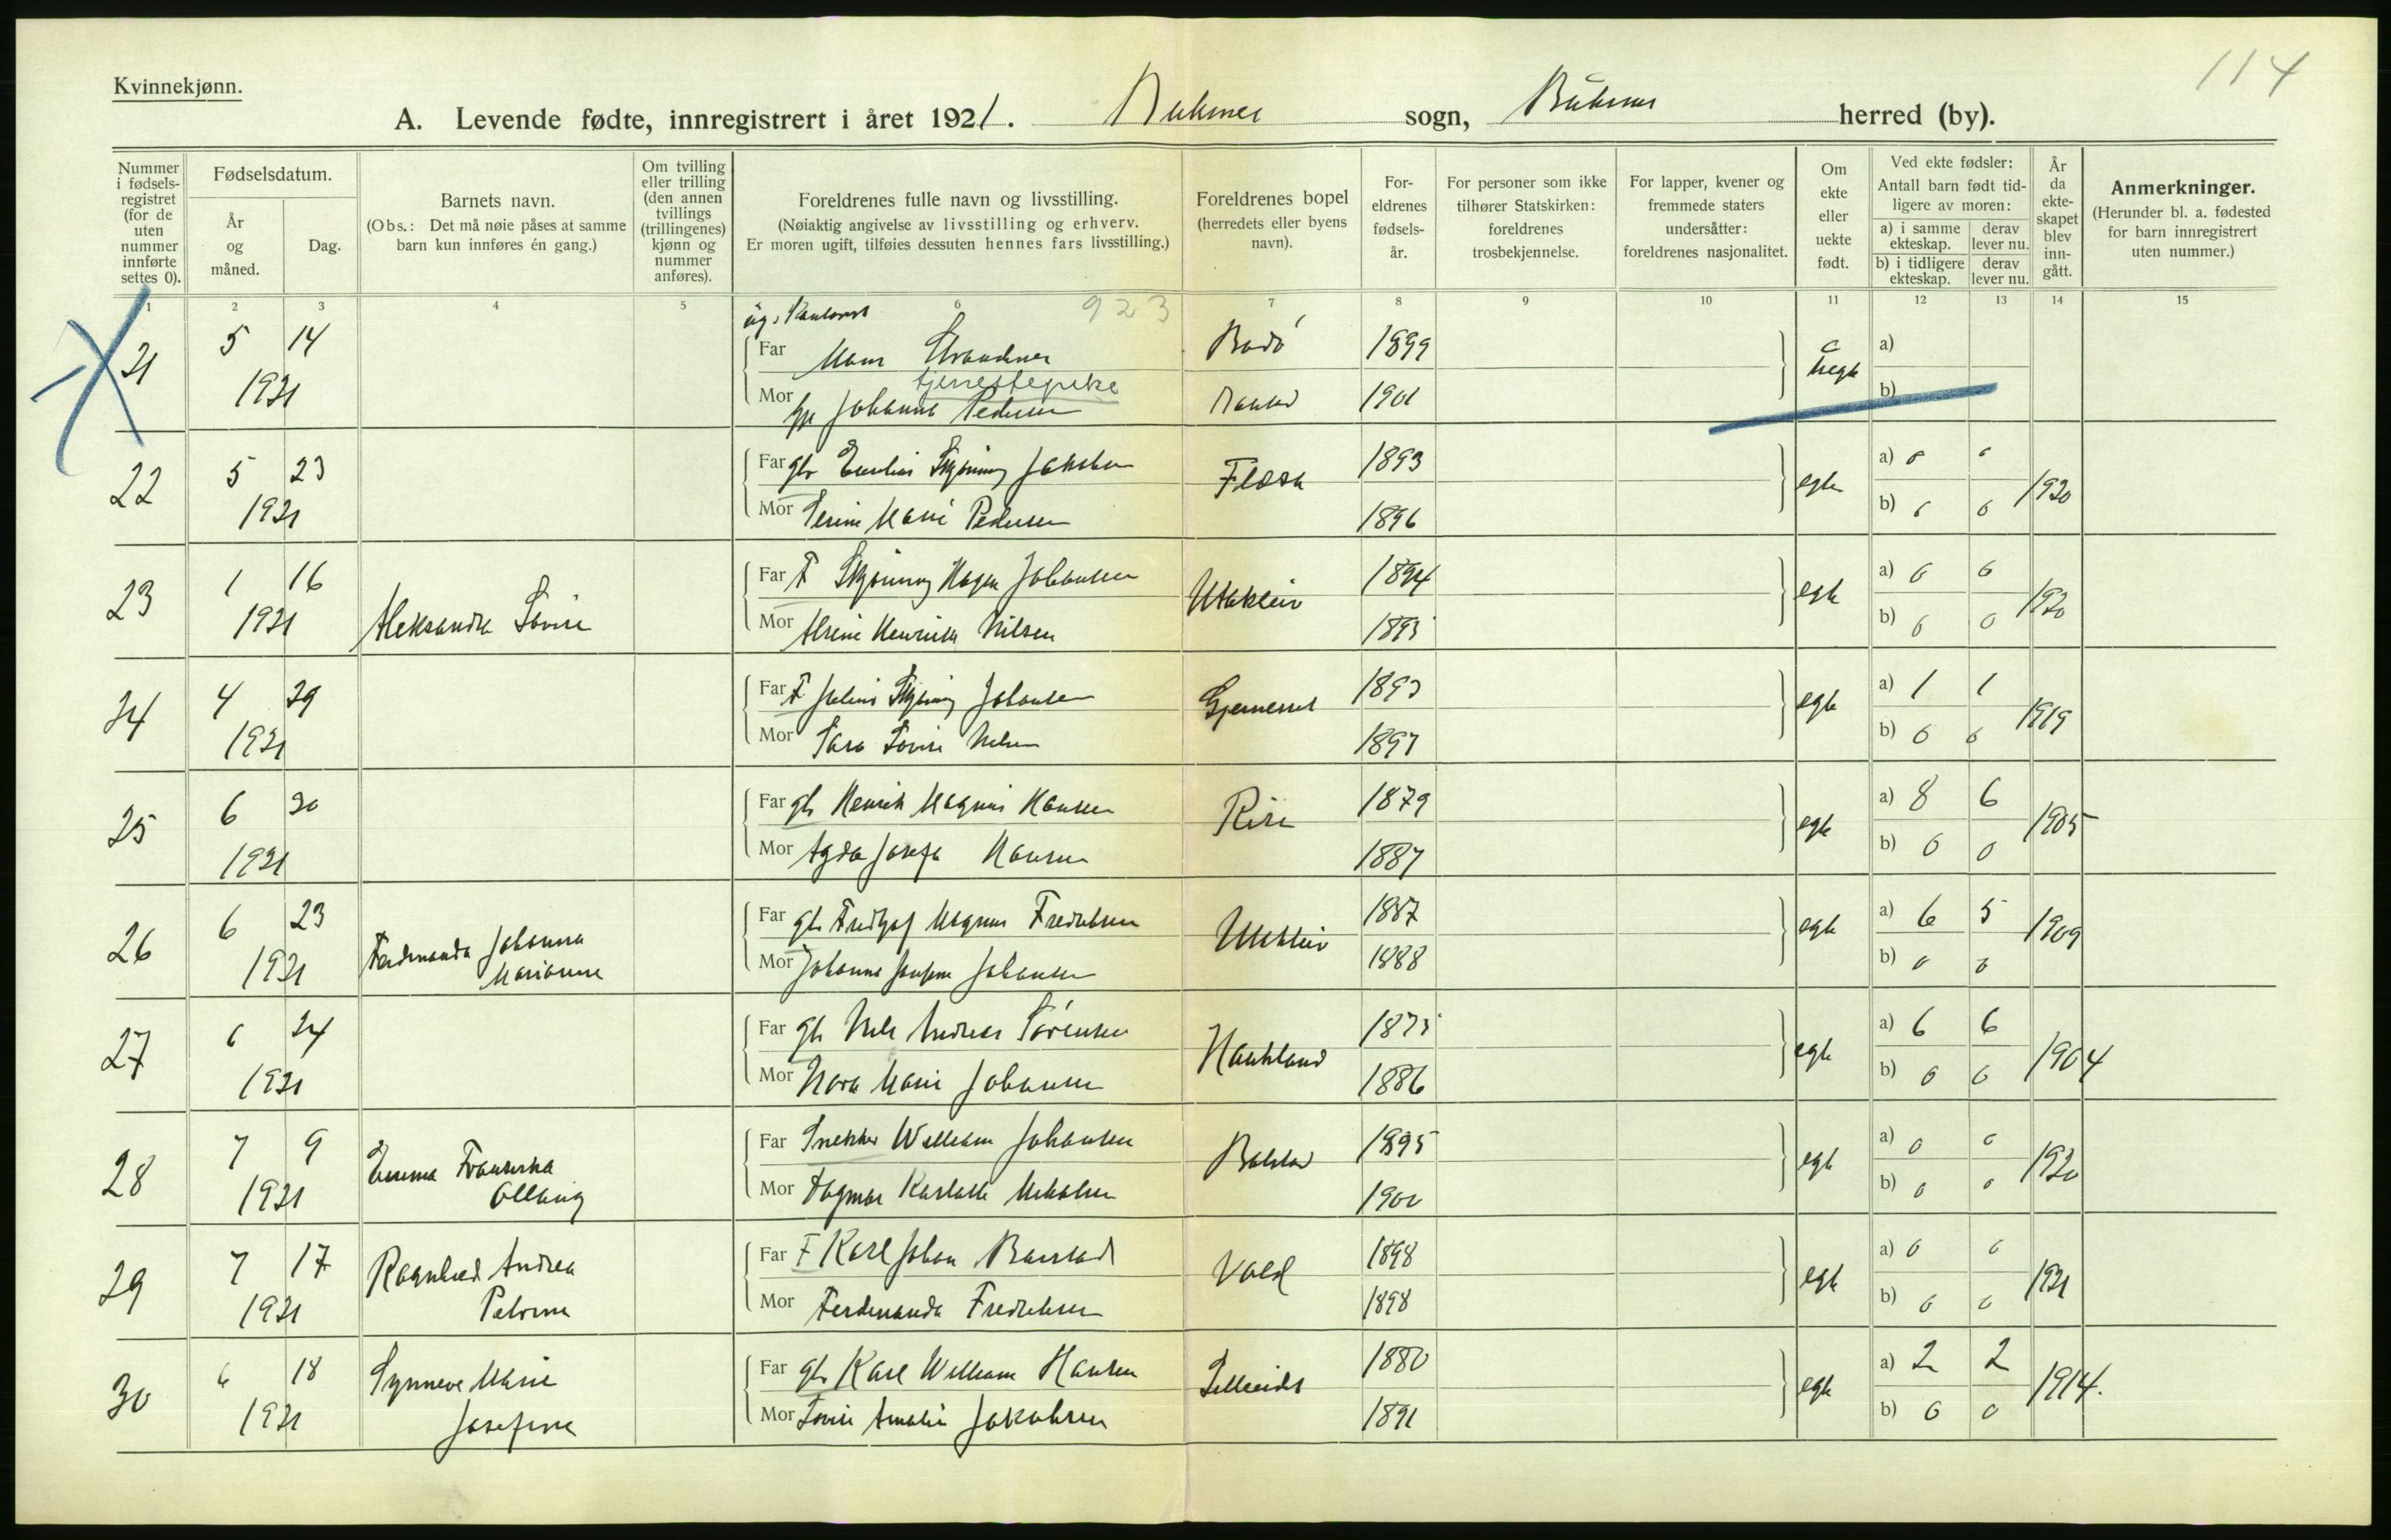 114
Kvinnekjønn.
A. Levende fødte, innregistrert i året 1921. Buksnes sogn, Buksnes herred (by).
Nummer i fødsels-registret (for de uten nummer innførte settes 0).
Fødselsdatum.
År og måned.
Dag.
Barnets navn.
(Obs.: Det må nøie påses at samme barn kun innføres én gang.)
Om tvilling eller trilling (den annen tvillings (trillingenes) kjønn og nummer anføres).
Foreldrenes fulle navn og livsstilling.
(Nøiaktig angivelse av livsstilling og erhverv.
Er moren ugift, tilføies dessuten hennes fars livsstilling.)
Foreldrenes bopel
(herredets eller byens navn).
For-eldrenes fødsels-år.
For personer som ikke tilhører Statskirken: foreldrenes trosbekjennelse.
For lapper, kvener og fremmede staters undersåtter: foreldrenes nasjonalitet.
Om ekte eller uekte født.
Ved ekte fødsler:
Antall barn født tid-ligere av moren:
a) i samme ekteskap.
derav lever nu.
b) i tidligere ekteskap.
derav lever nu.
År da ekte-skapet blev inn-gått.
Anmerkninger.
(Herunder bl. a. fødested for barn innregistrert uten nummer.)
1 2 3 4 5 6 7 8 9 10 11 12 13 14 15
923
21 5 14 1921
Far Hans
Bodø 1899
tjenestepike
Mor Johanna Pedersen
Balstad 1901
uegte
a)
b)
22 5 23 1921
Far Skjønning Jakobsen
1893
Mor Marie Pedersen
1896
egte
a) 0 0
b) 0 0
1920
23 1 16 1921
Aleksandra Lovise
Far F Skjønning Hagen Johansen
Utakleiv 1894
Mor Alvine Henrikke Nilsen
1895
egte
a) 0 0
b) 0 0
1920
24 4 29 1921
Far F Julius Skjønning Johansen
1893
Mor Sara Lovise Nilsen
1897
egte
a) 1 1
b) 0 0
1919
25 6 20 1921
Far gb Henrik Magnus Hansen
1879
Mor Agda Josefa Hansen
1887
egte
a) 8 6
b) 0 0
1905
26 6 23 1921
Ferdinanda Johanna
Marianne
Far gb Fridtjof Magnus Fredriksen
Utakleiv 1887
Mor Johanna Johansen
1888
egte
a) 6 5
b) 0 0
1909
27 6 24 1921
Far gb Nils Andreas Sørensen
Haukland 1875
Mor Nora Marie Johansen
1886
egte
a) 6 6
b) 0 0
1904
28 7 9 1921
Emma Fransiska
Far Snekker William Johansen
Balstad 1895
Mor Dagmar
1900
egte
a) 0 0
b) 0 0
1920
29 7 17 1921
Ragnhild Andrea
Petrine
Far F Karl Johan
Vold 1898
Mor Ferdinanda Fredriksen
1898
egte
a) 0 0
b) 0 0
1921
30 6 18 1921
Synneve Marie
Josefine
Far gb Karl William Hansen
1880
Mor Lovise Amalie Jakobsen
1891
egte
a) 2 2
b) 0 0
1914.